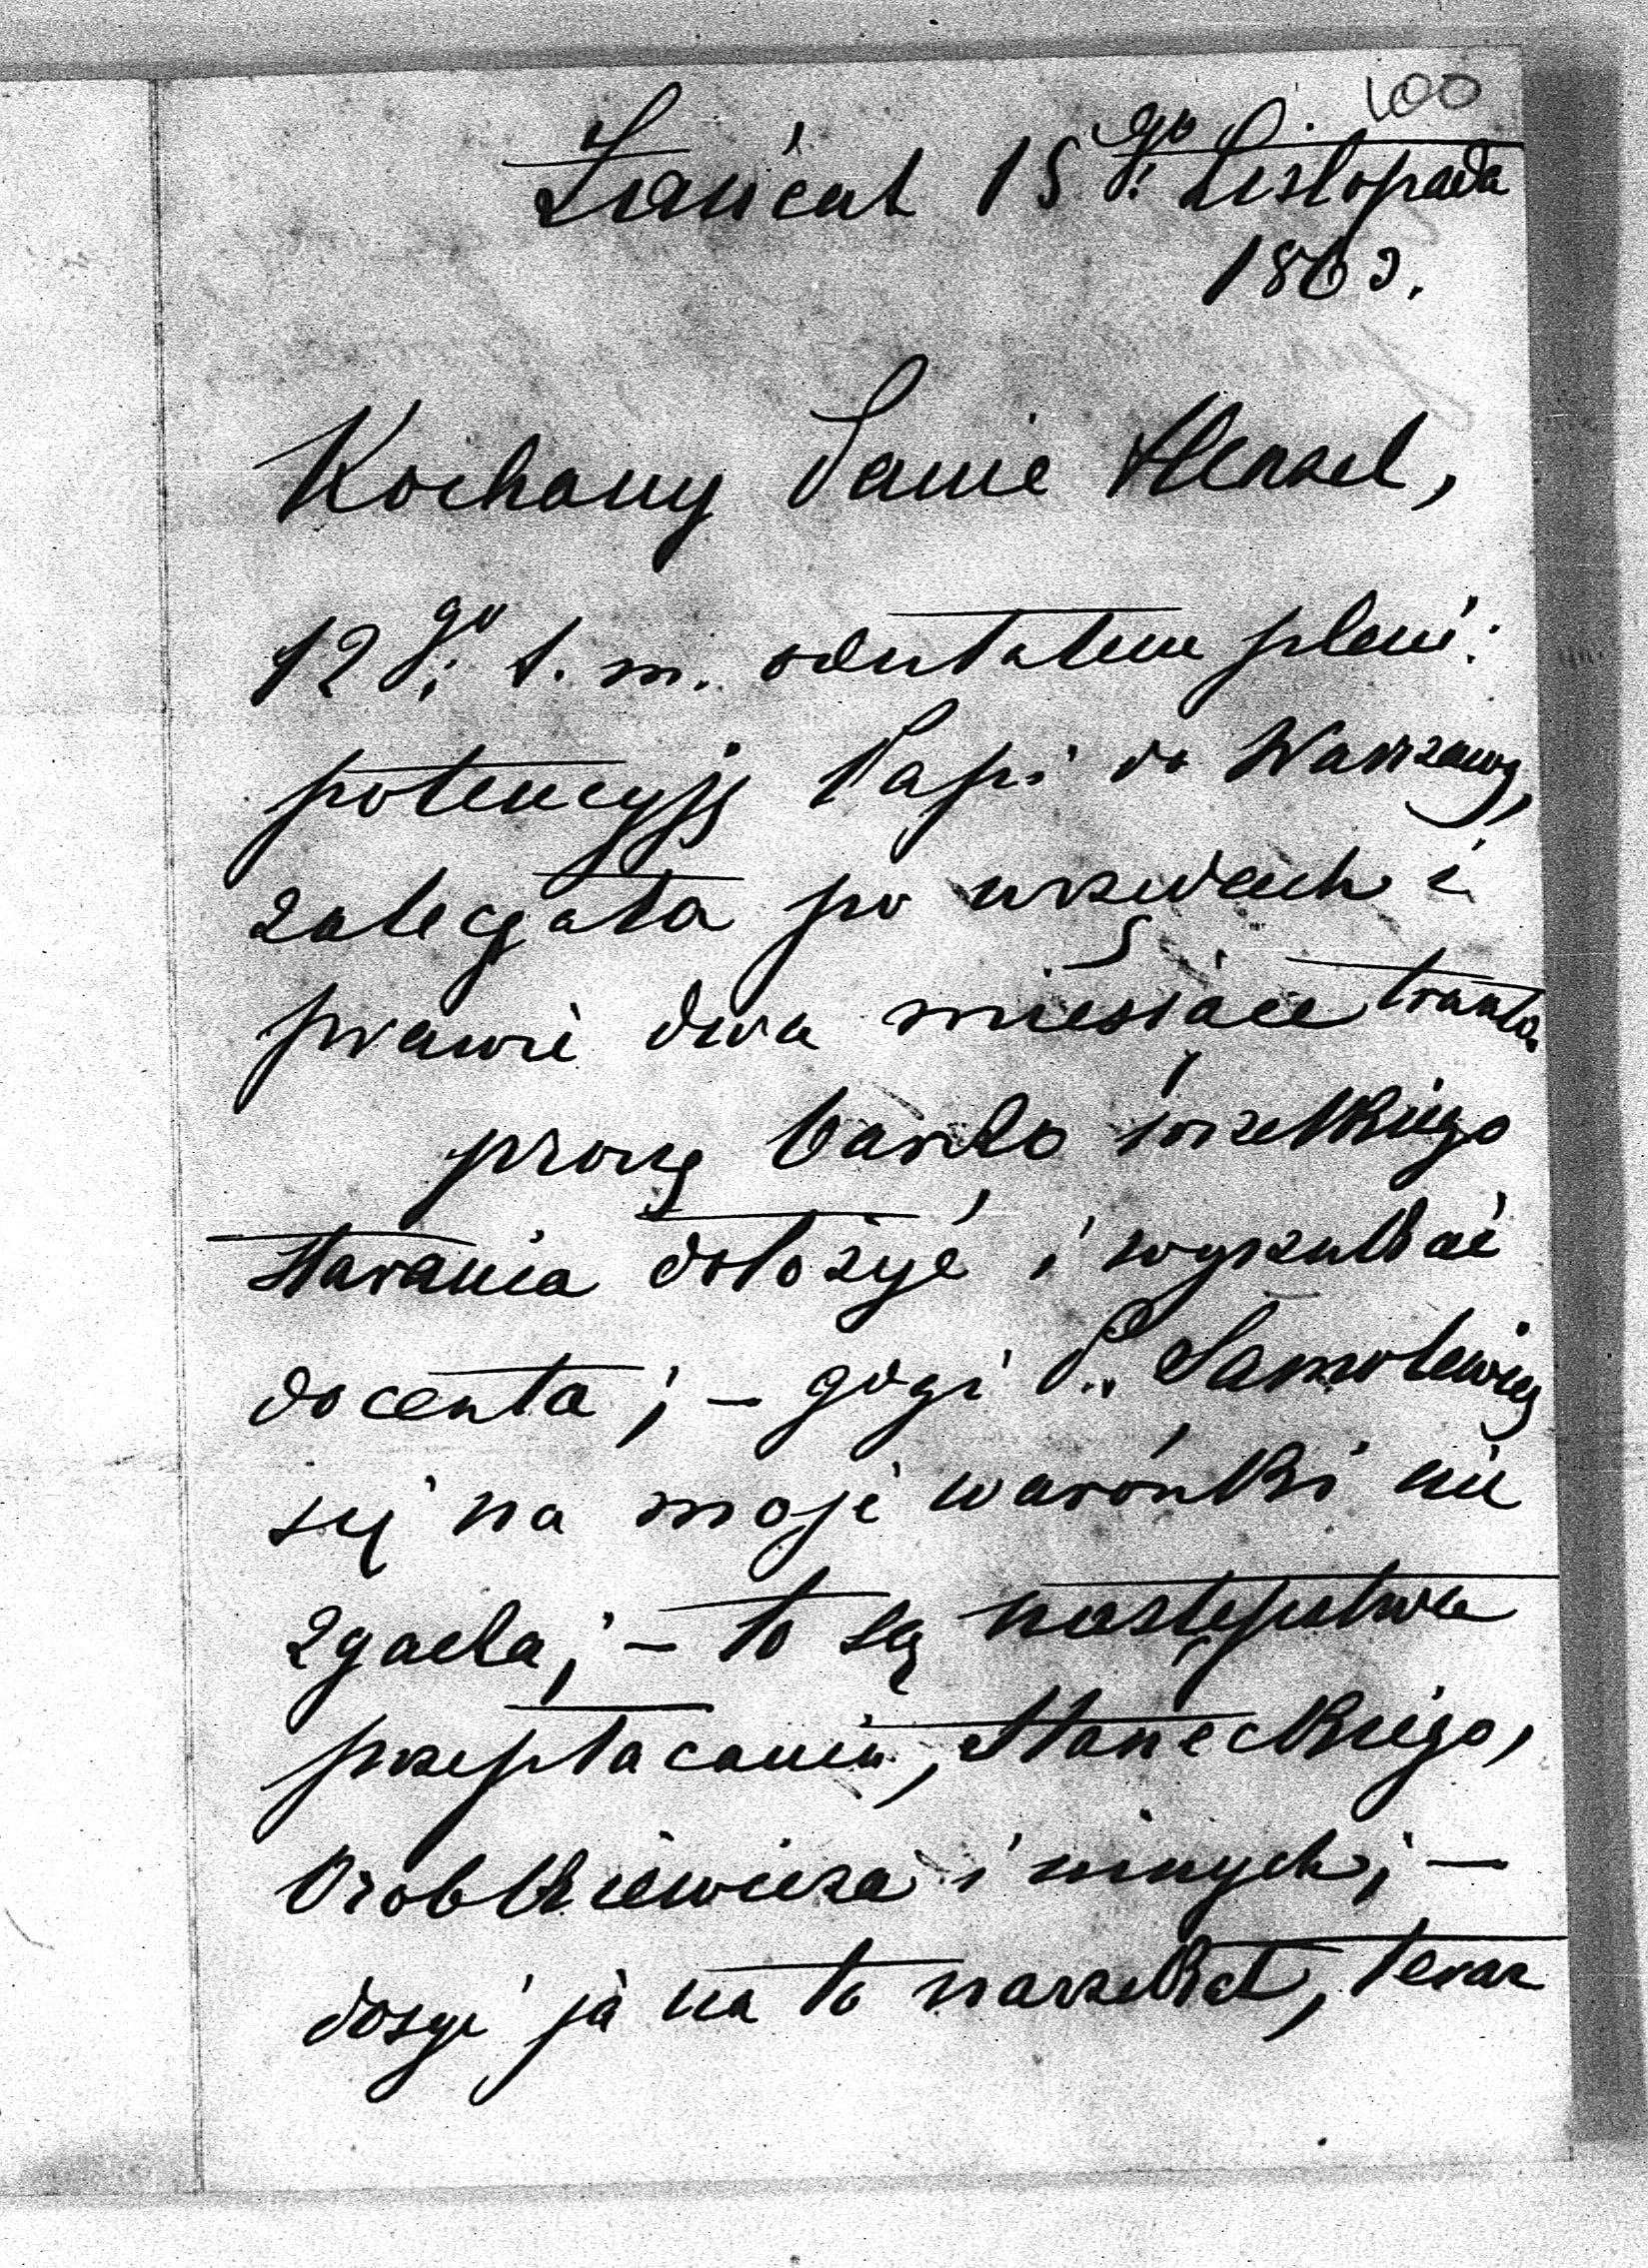 100
Łańcut 15go Listopada
1863.
Kochany Panie Hensel,
12go t. m. odesłałem pleni:
potencyję Papi do Warszawy,
zalegała po urzędach i
prawie dwa miesiące trwała.
proszę bardzo wszelkiego
starania dołożyć i wyszukać
docenta; – gdyż P. Samolewicz
się na moje warónki nie
zgadza; – to są następstwa
przepłacania, Staneckiego,
Wróblkiewicza i innych; –
dosyć ja na to narzekał, teraz